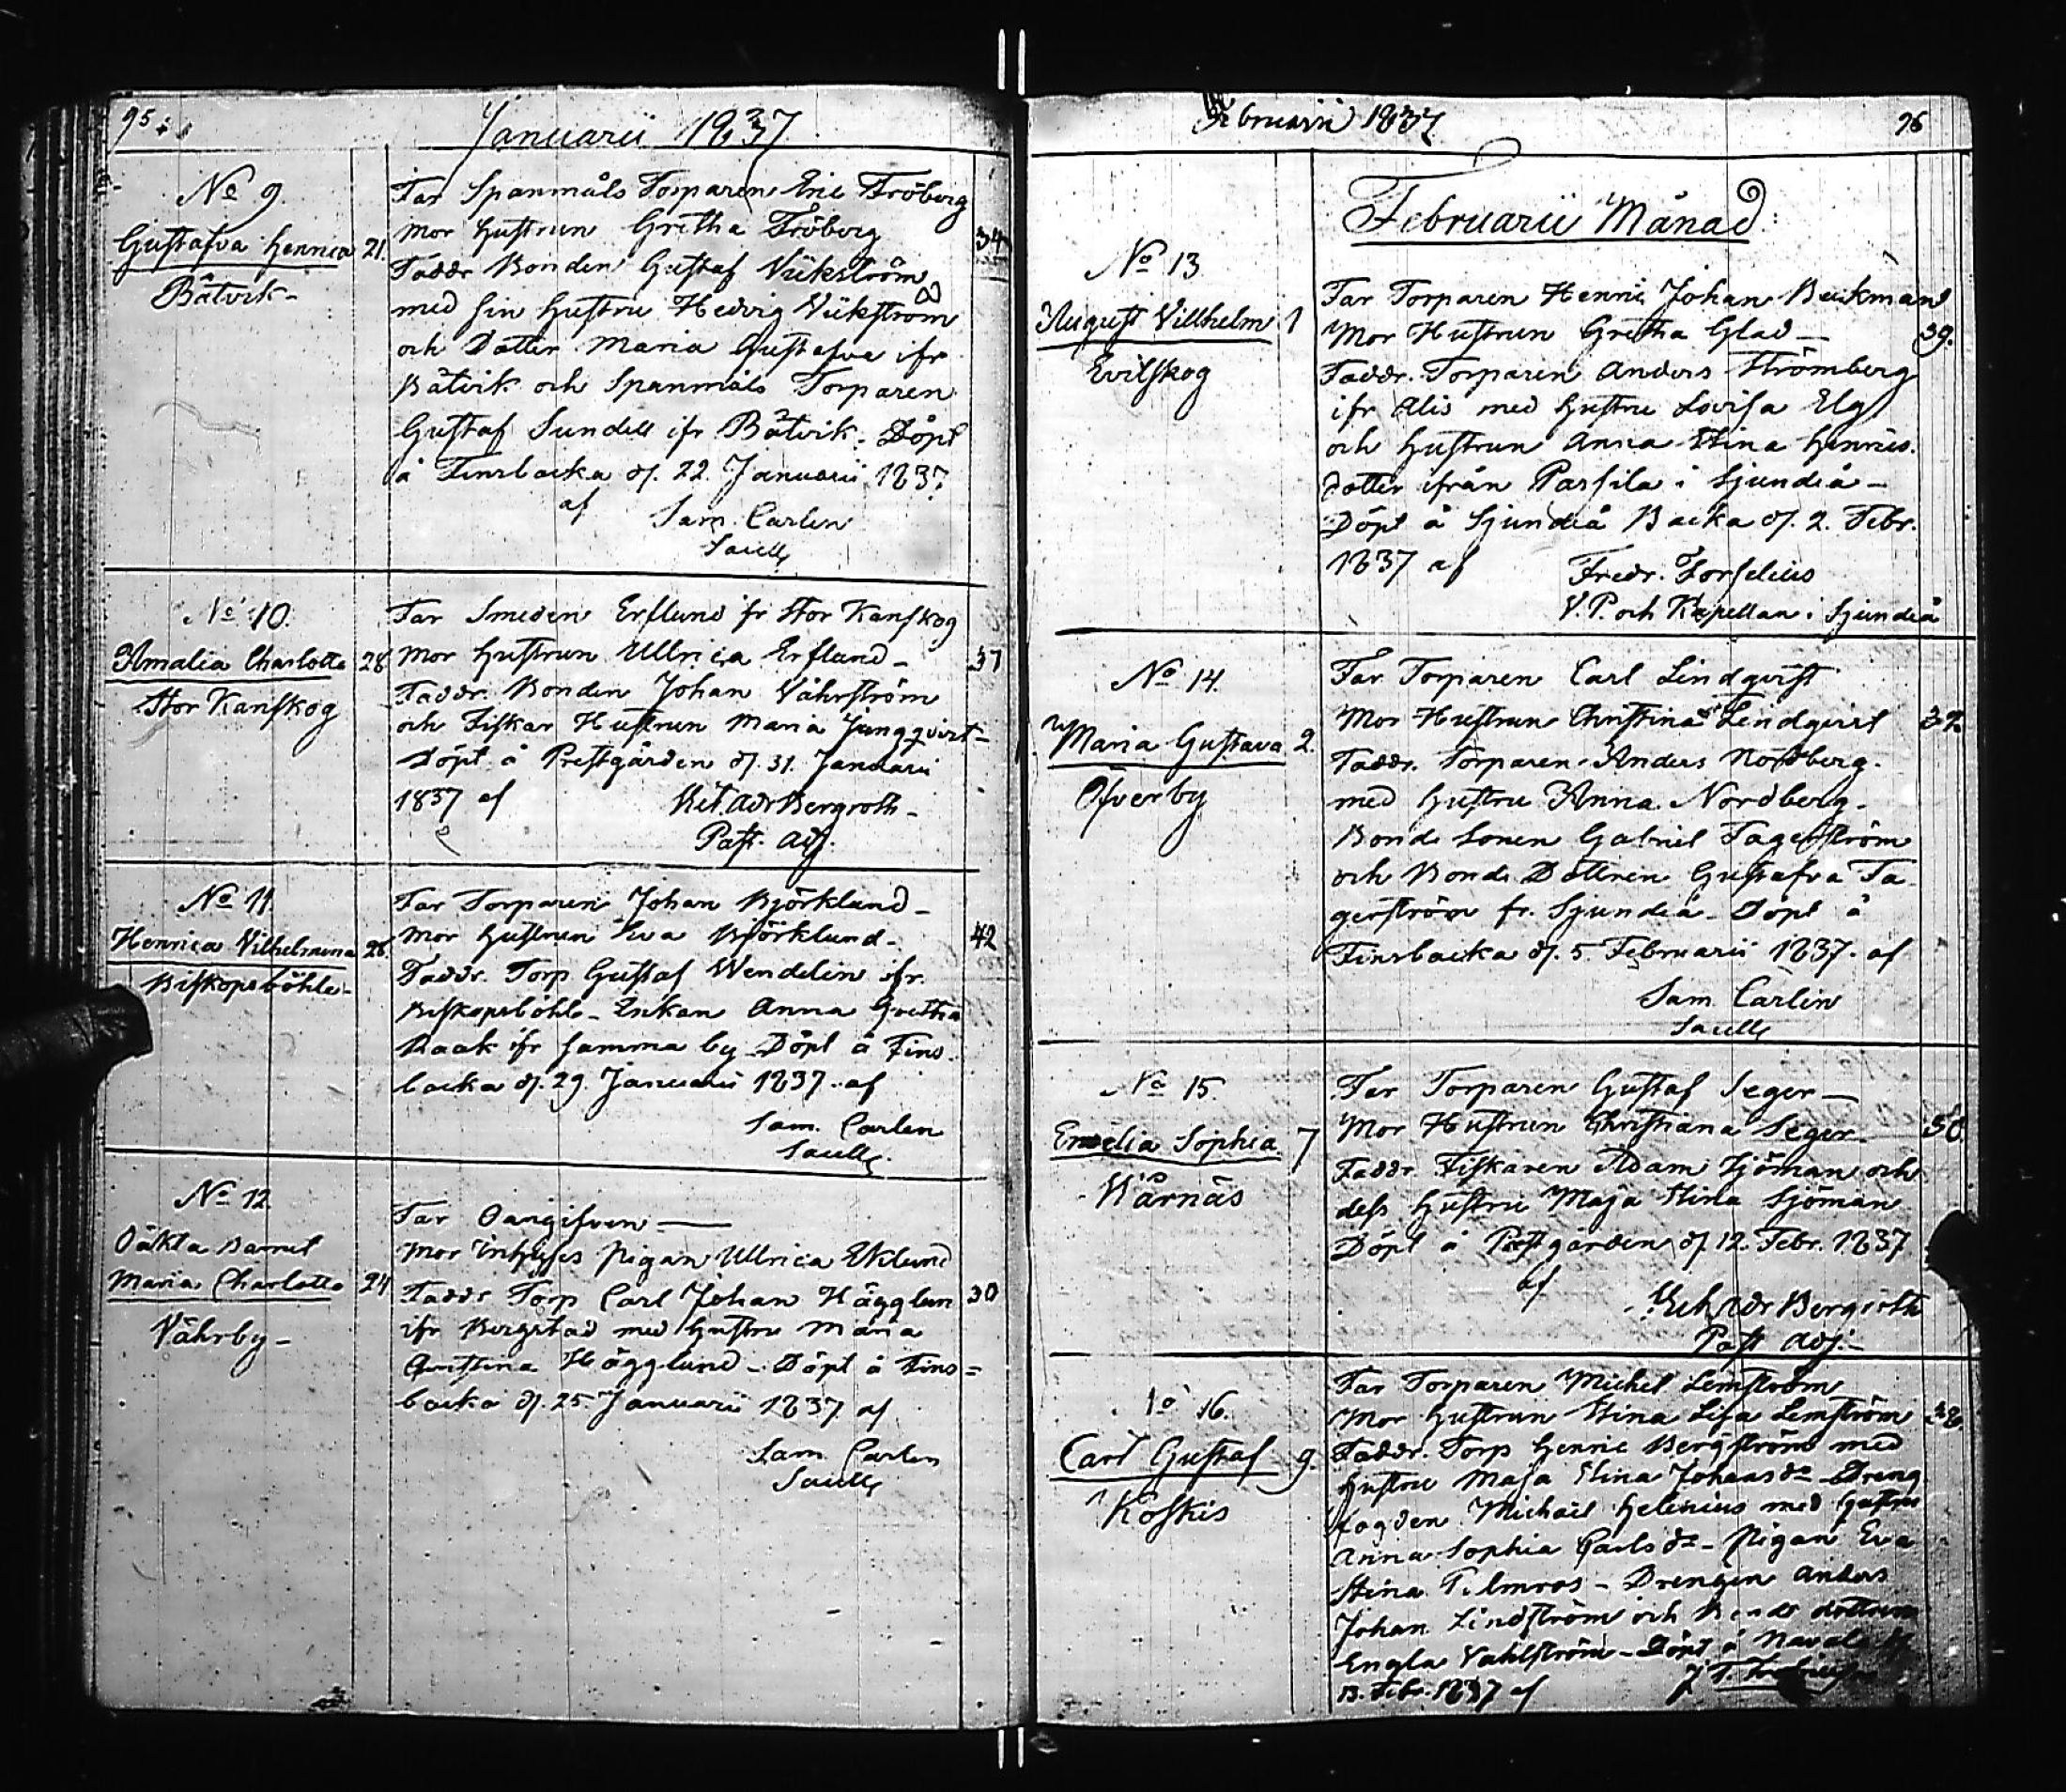 95
Januarii 1837
No 9.
Gustafva Henrica 21.
Båtvik-
Far Spanmåls Torparen Eric Fröberg
Mor Hustrun Gretha Fröberg
34
Faddr Bonden Gustaf Vikström
med sin Hustru Hedvig Vikström
och Dotter Maria Gustafva ifr
Båtvik och Spanmåls Torparen
Gustaf Sundell ifr Båtvik. Döpt
å Finsbacka d. 22. Januarii 1837
af Sam. Carlen
Sacell
No 10.
Amalia Charlotta 28
Stor Kanskog
Far Smeden Erflund fr Stor Kanskog
Mor Hustrun Ullrica Erflund-
37
Faddr. Bonden Johan Våhrström
och Fiskar Hustrun Maria Jungqvist-
Döpt å Prestgården d. 31. Januarii
1837 af Adr Bergroth-
Past. Adj.
No 11.
Henrica Vilhelmina 26
Biskopsböhle-
Far Torparen Johan Björklund-
Mor Hustrun Eva Björklund-
42
Faddr. Torp. Gustaf Wendelin ifr.
Biskopsböhle- Enkan Anna Gretha
Haak ifr samma by Döpt å Fins-
backa d. 29. Januarii 1837. af
Sam. Carlen
Sacell.
No 12
Oäkta Barnet
Maria Charlotta 24
Våhrby-
Far Oangifven
Mor Inhyses Pigan Ullrica Eklund
30
Faddr Torp Carl Johan Hägglun
ifr Bergstad med Hustru Maria
Christina Hägglund- Döpt å Fins=
backa d. 25. Januarii 1837. af
Sam. Carlen
Sacell
Februarii 1837
96
Februarii Månad
No 13
August Villhelm 1
Evilskog
Far Torparen Henric Johan Beckman
Mor Hustrun Gretha Glad-
39.
Faddr. Torparen Anders Strömberg
ifr Alis med Hustru Lovisa Elg
och Hustrun Anna Stina Henrics.
dotter ifrån Parsila i Sjundeå-
Döpt å Sjundeå Backa d. 2. Febr.
1837 af Fredr. Forselius
V.P. och Kapellan i Sjundeå
No 14.
Maria Gustava 2.
Öfverby
Far Torparen Carl Lindqvist
Mor Hustrun Christina Lindqvist
Faddr. Torparen Anders Nordberg.
med Hustru Anna Nordberg-
Bonde Sonen Gabriel Tagerström
och Bonde Dottren Gustafva Ta
gerström fr. Sjundeå- Döpt å
Finsbacka d. 5. Februarii 1837. af
Sam Carlen
Sacell
No 15.
Emelia Sophia 7
Wärnäs
Far Torparen Gustaf Seger-
Mor Hustrun Christiana Seger-
Faddr. Fiskaren Adam Sjöman och
dess Hustru Maja Stina Sjöman
Döpt å Prestgården d. 12. Febr. 1837
af
Adr Bergroth
Past Adj.-
No 16.
Carl Gustaf 9.
Koskis
Far Torparen Michel Lemström
Mor Hustrun Stina Lisa Lemström
Faddr. Torp Henric Bergström med
Hustru Maja Stina Johansdr- Dreng
fogden Michael Helenius med Hustru
Anna Sophia Carlsdr- Pigan Eva
Stina - Drengen Anders
Johan Lindström och Bonde dottren
Engla Vahlström- Döpt å
13. Febr. 1837 af